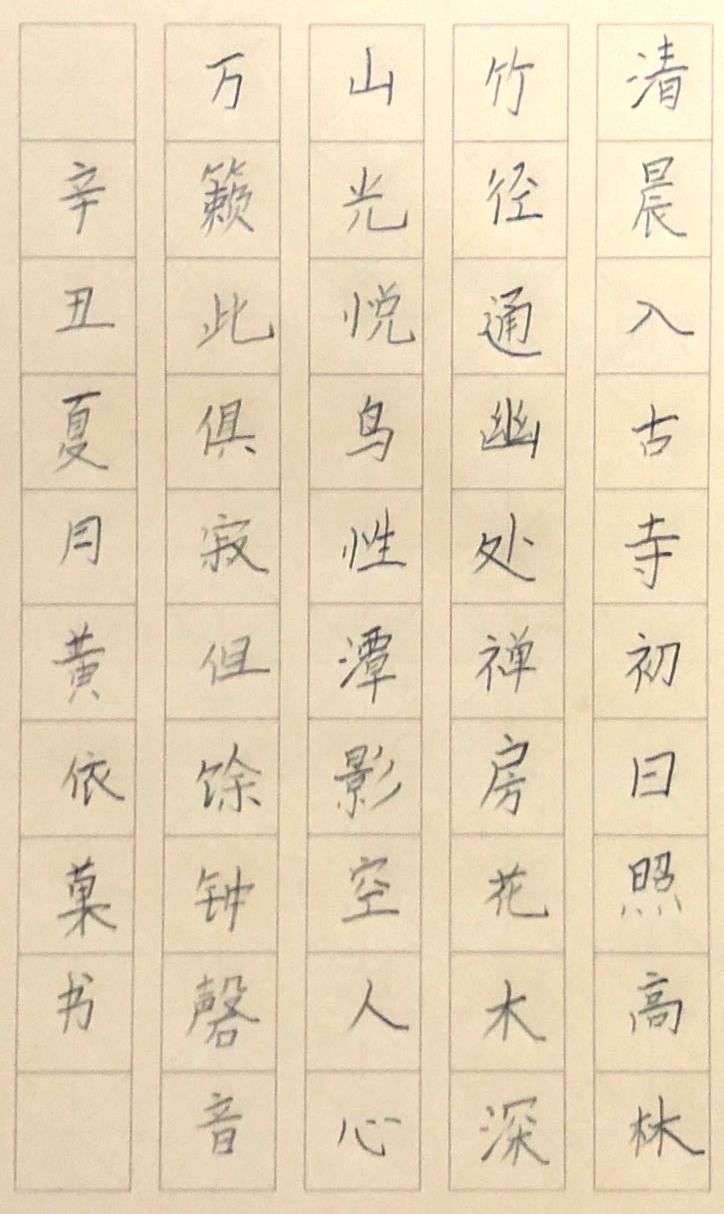 清晨入古寺初日照高林
竹径通幽处禅房花木深
山光悦鸟性潭影空人心
万籁此俱寂但馀钟磬音
辛丑夏月黄依菓书